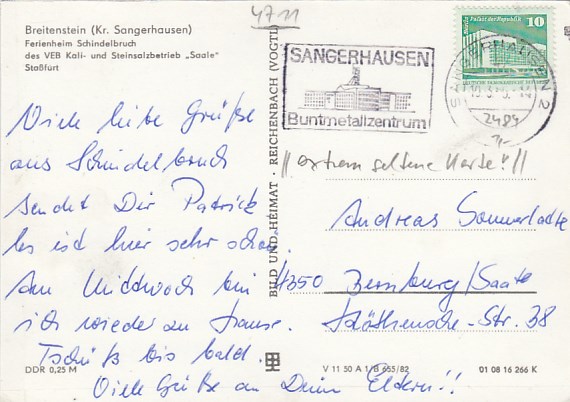 4711
Breitenstein (Kr. Sangerhausen)
Ferienheim Schindelbruch
des VEB Kali- und Steinsalzbetrieb „Saale"
Staßfurt
Viele liebe Grüße
aus Schindelbruch
sendet Dir Patrick
Es ist hier sehr schön.
Am Mittwoch bin
ich wieder zu Hause.
Tschüß bis bald.
Viele Grüße an Deine Eltern!!
DDR 0,25 M
BILD UND HEIMAT · REICHENBACH (VOGTL)
SANGERHAUSEN
Buntmetallzentrum
Palast der Republik
10
SANGERHAUSEN 2
//extrem seltene Karte!!//
Andreas Sommerlatte
4350 Bernburg/Saale
Köthensche-Str. 38
V 11 50 A 1/B 655/82
01 08 16 266 K